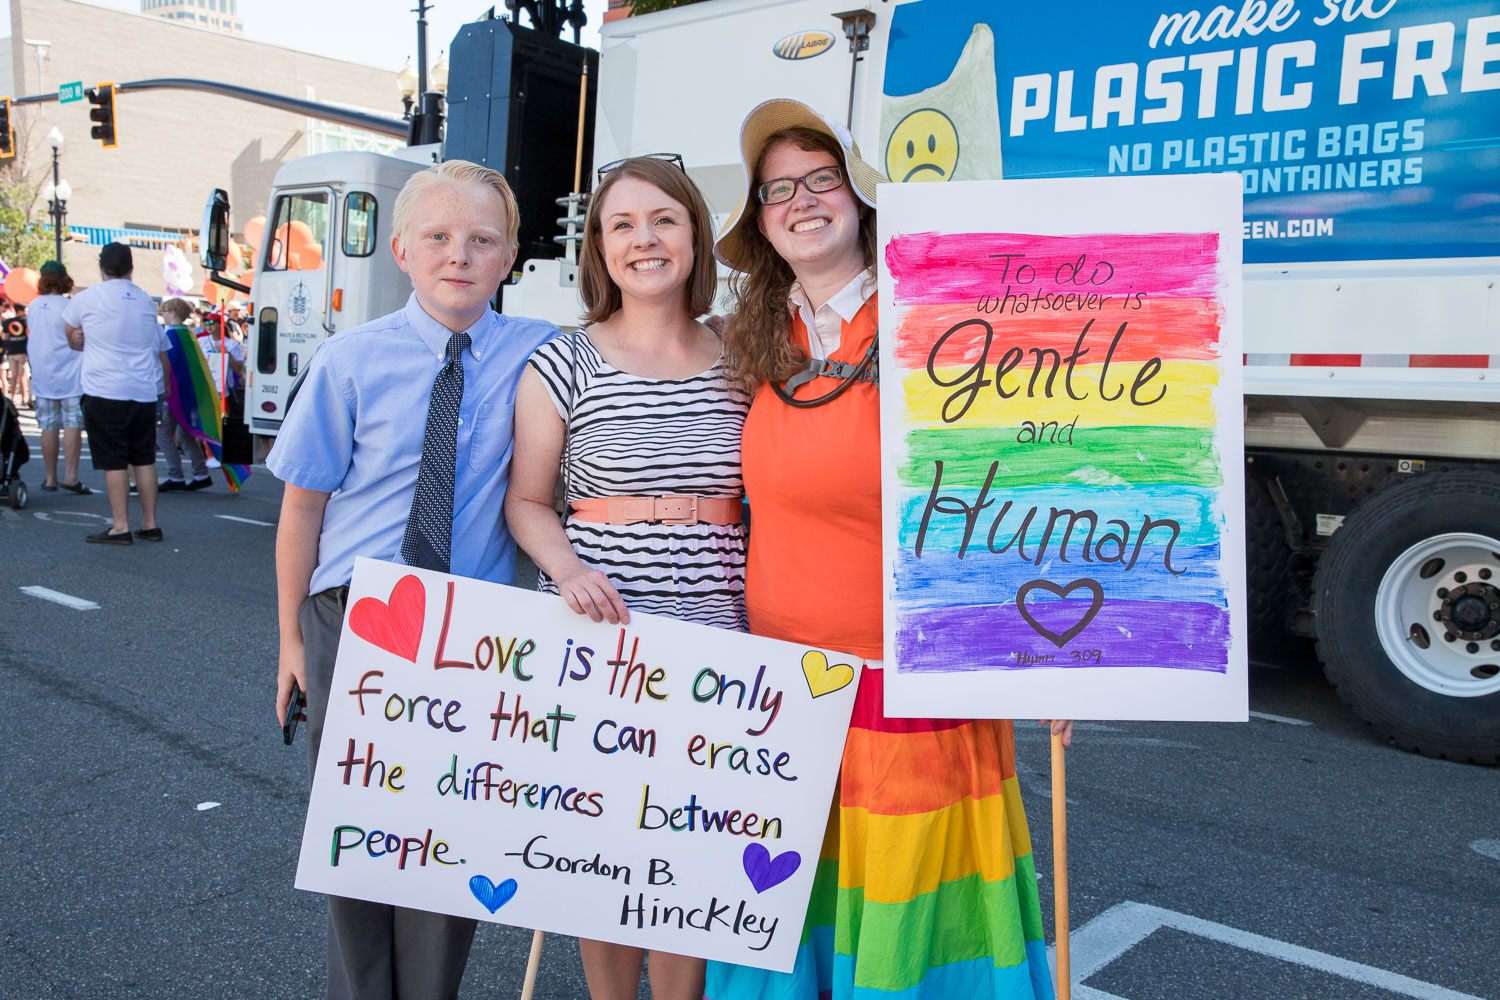 200 W
LABRIE
make su
PLASTIC FRE
NO PLASTIC BAGS
ONTAINERS
EEN.COM
WASTE & RECYCLING
DIVISION
26082
To do
whatsoever is
Gentle
and
Human
Hymn 309
Love is the only
force that can erase
the differences between
people. -Gordon B.
Hinckley